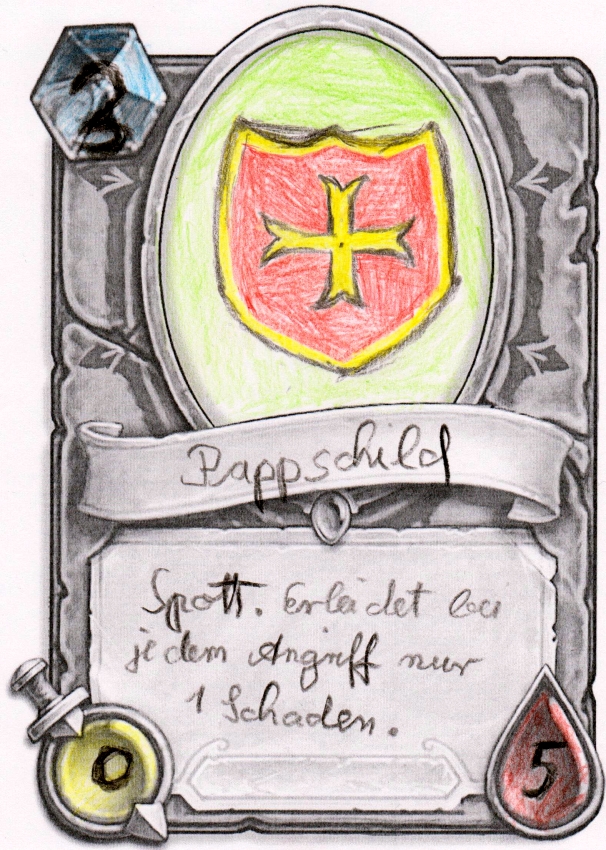 2
Pappschild
Spott. Erleidet bei
jedem Angriff nur
1 Schaden.
0
5